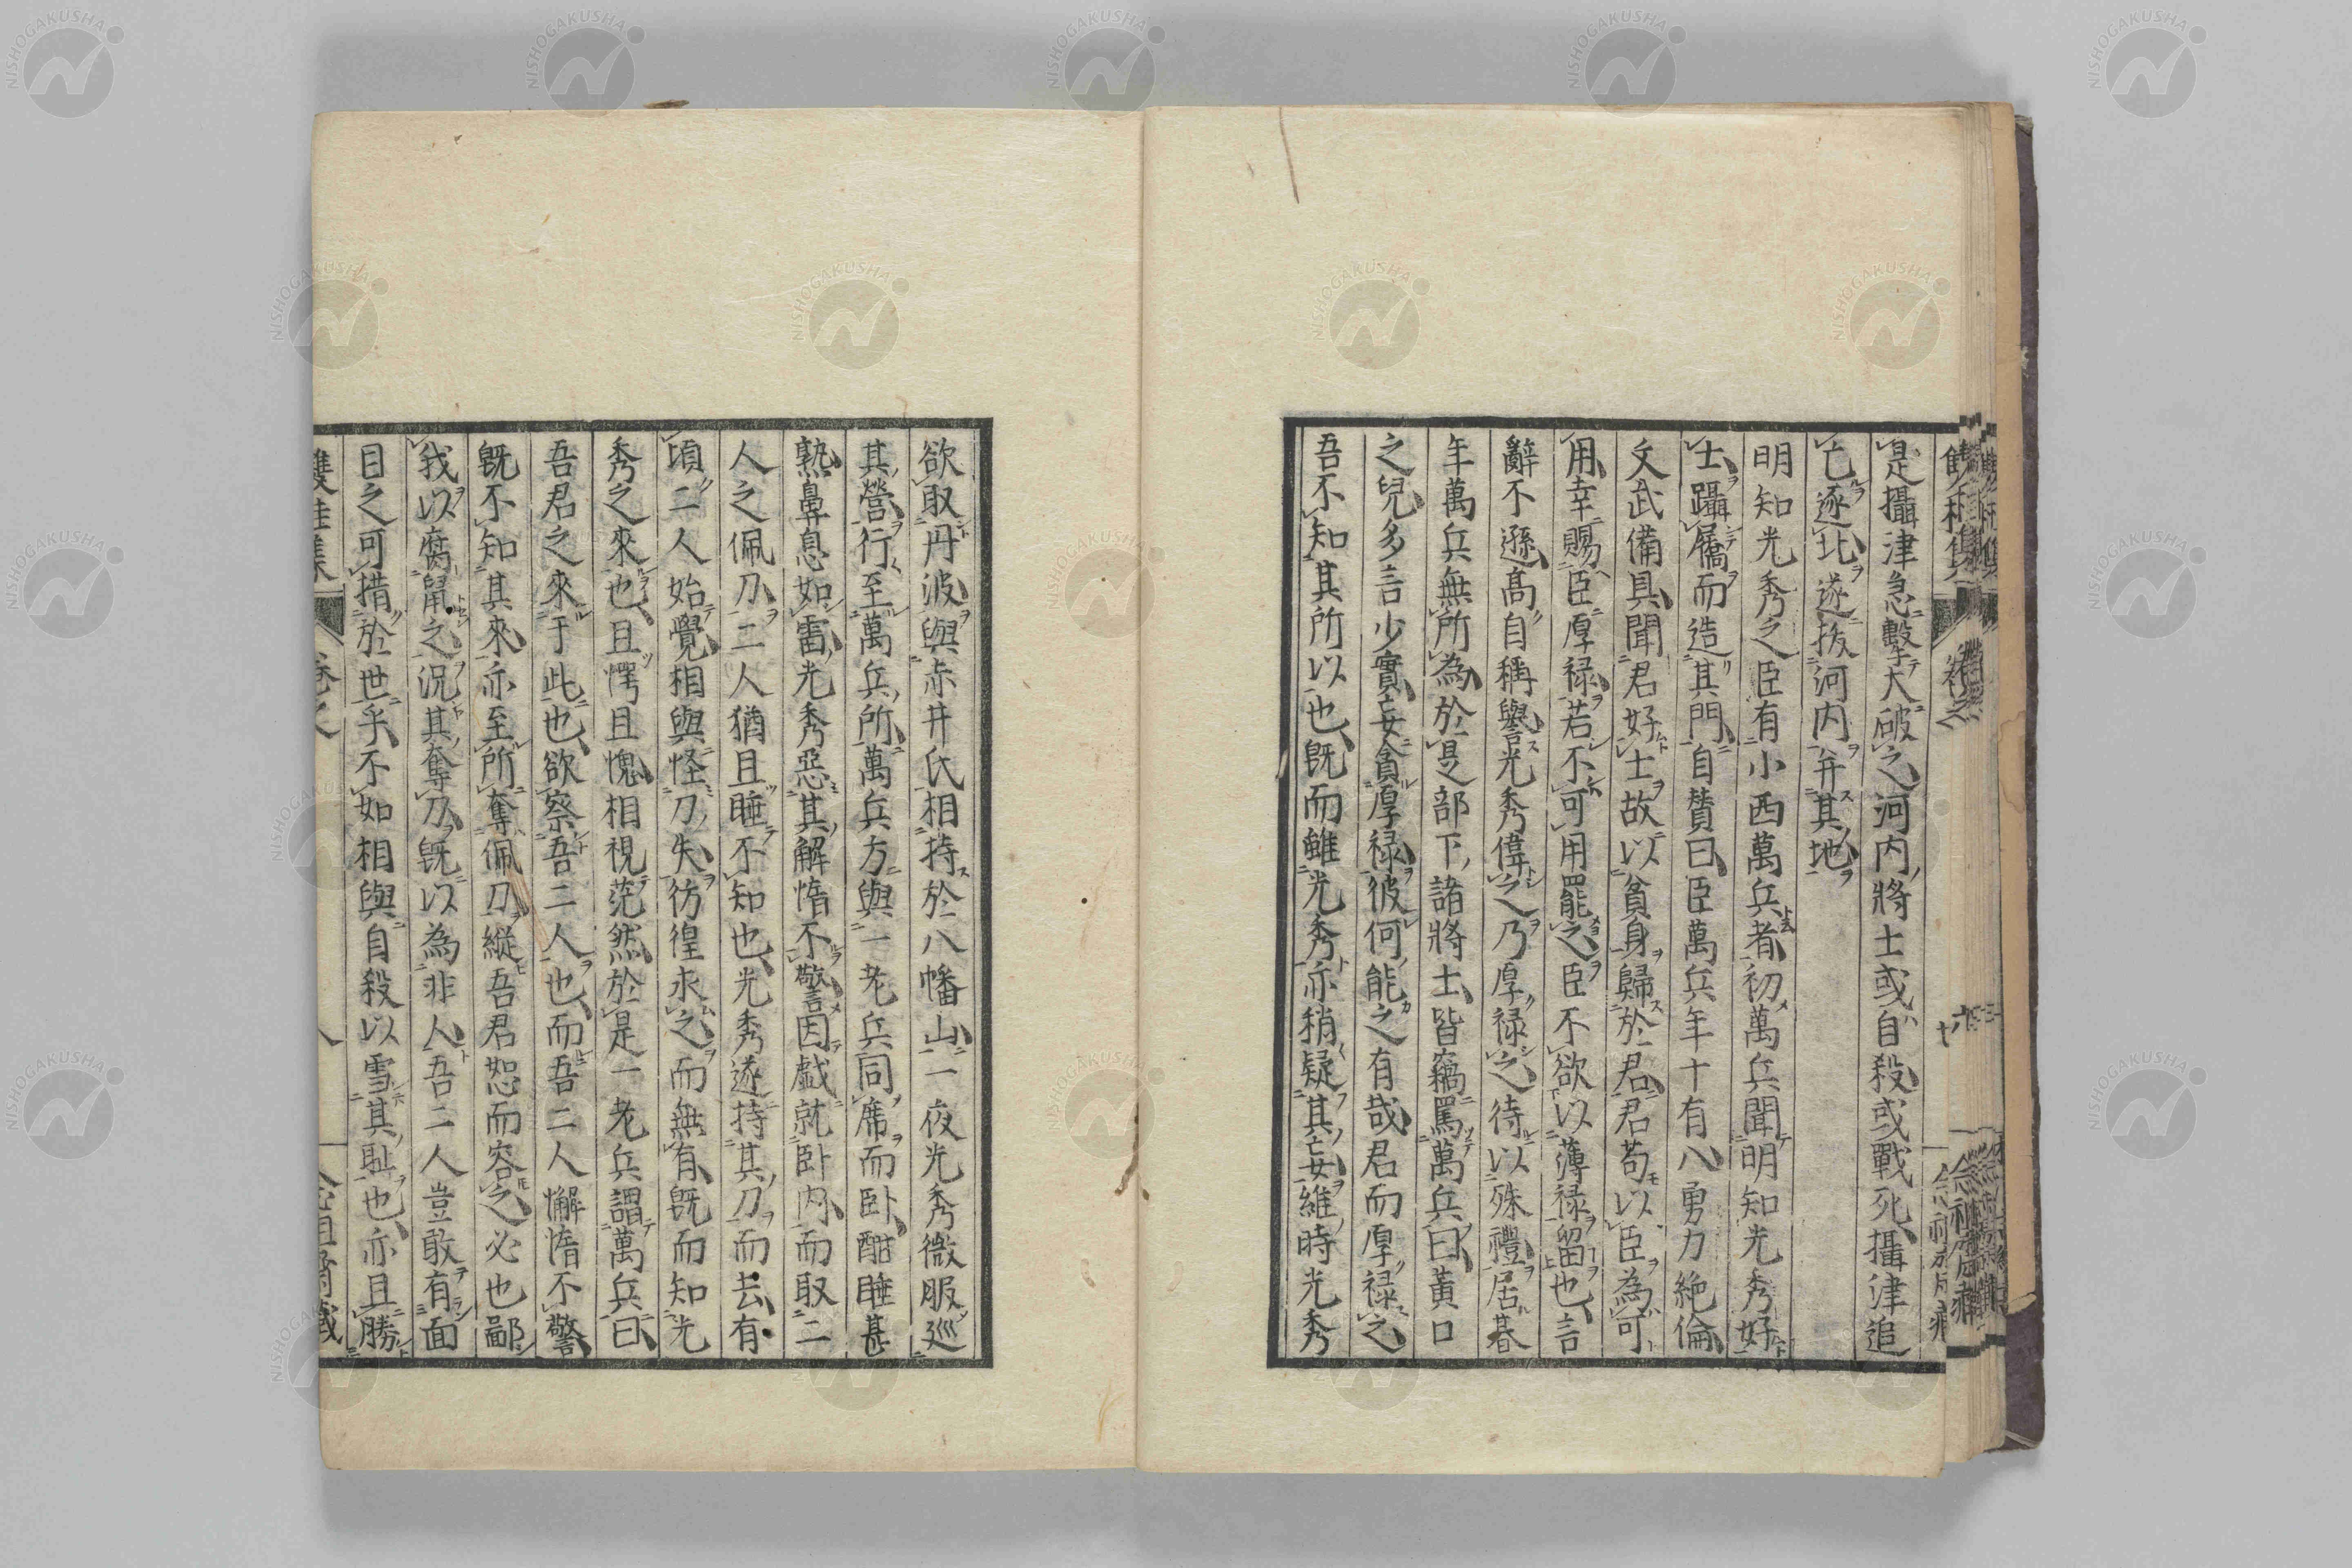 是攝津急擊大破之河内將士或自殺或戰死攝津追
亡逐北遂抜河内并其地
明知光秀之臣有小西萬兵者初萬兵聞明知光秀好
士躡屩而造其門自贊曰臣萬兵年十有八勇力絶倫
文武備具聞君好士故以貧身歸於君君苟以臣為可
用幸賜臣厚禄若不可用罷之臣不欲以薄禄留也言
辭不遜高自稱譽光秀偉之乃厚禄之待以殊禮居暮
年萬兵無所為於是部下諸將士皆竊罵萬兵曰黃口
之兒多言少實妄貪厚禄彼何能之有哉君而厚禄之
吾不知其所以也既而雖光秀亦稍疑其妄維時光秀
欲取丹波與赤井氏相持於八幡山一夜光秀微服巡
其營行至萬兵所萬兵方與一老兵同席而卧酣睡甚
熟鼻息如雷光秀惡其解惰不警因戲就卧内而取二
人之佩刀二人猶且睡不知也光秀遂持其刀而去有
頃二人始覺相與怪刀失彷徨求之而無有既而知光
秀之來也且愕且愧相視茫然於是一老兵謂萬兵曰
吾君之來于此也欲察吾二人也而吾二人懈惰不警
既不知其來亦至所奪佩刀縱吾君恕而容之必也鄙
我以腐鼠之況其奪刀既以為非人吾二人豈敢有面
目之可措於世乎不如相與自殺以雪其耻也亦且勝
雙桂集